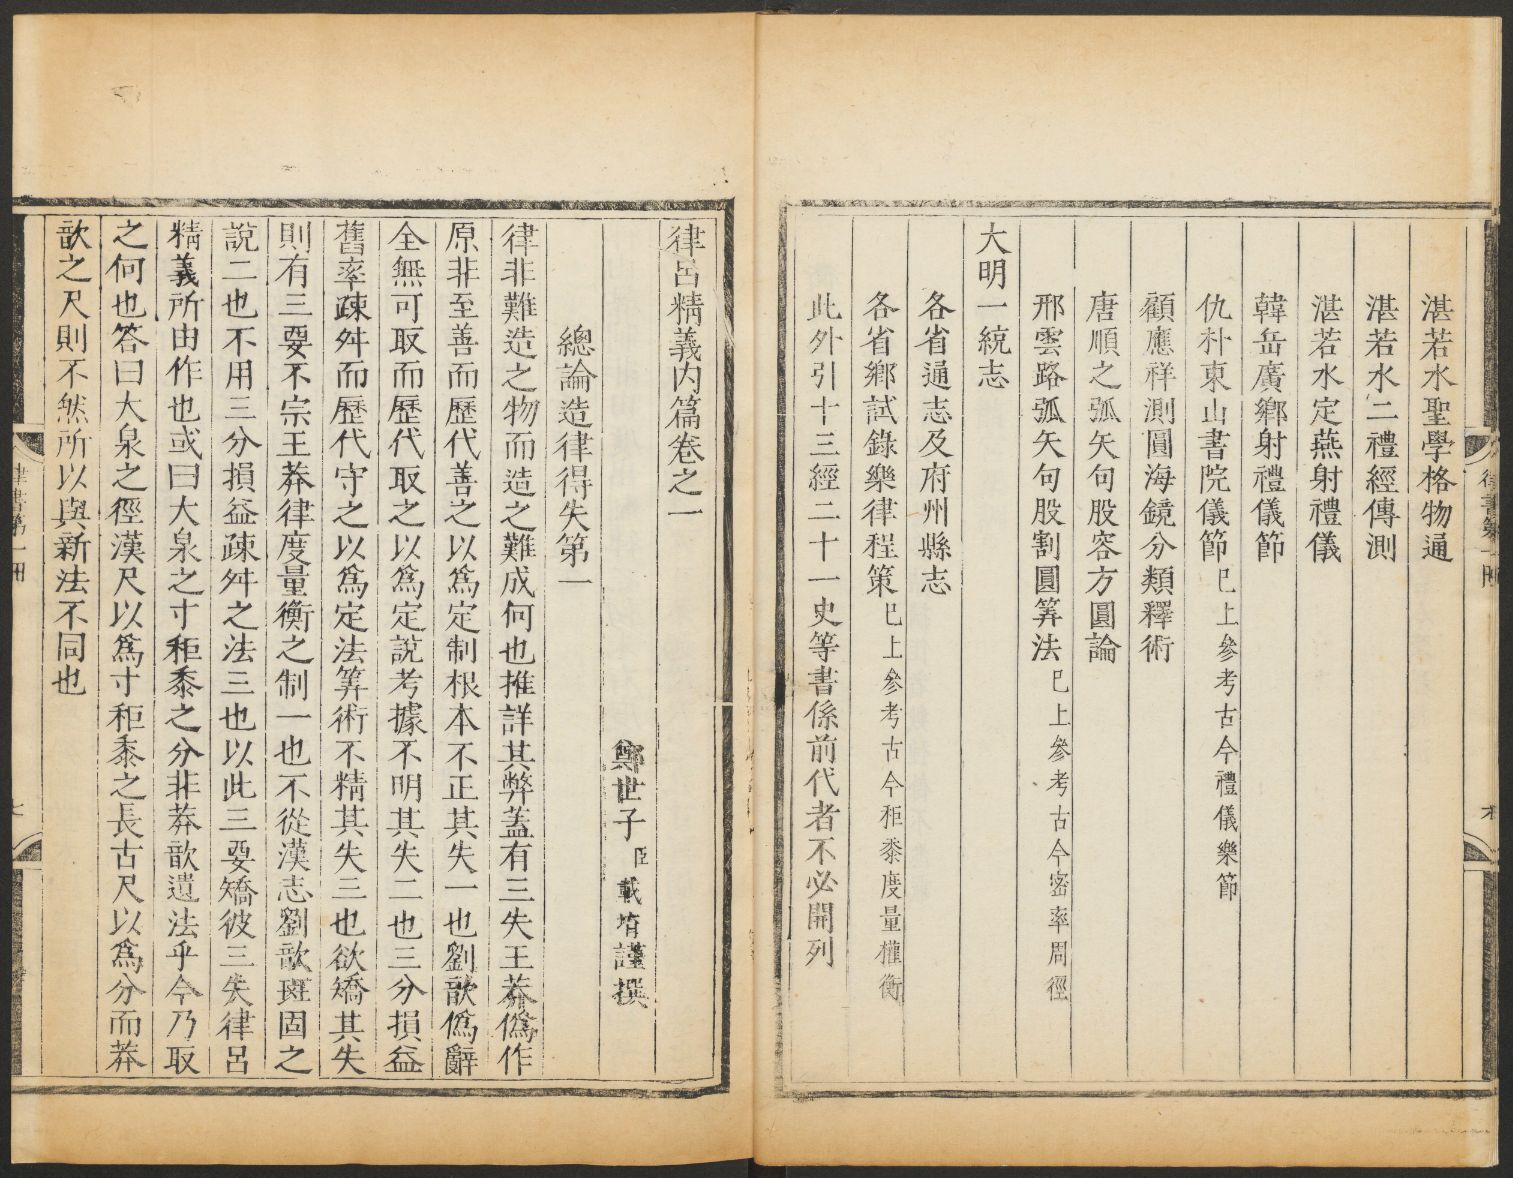 湛若水聖學格物通
湛若水二禮經傳測
湛若水定燕射禮儀
韓岳廣鄉射禮儀節
仇朴東山書院儀節已上參考古今禮儀樂節
顧應祥測圓海鏡分類釋術
唐順之弧矢句股容方圓論
邢雲路弧矢句股割圓筭法已上參考古今密率周徑
大明一統志
各省通志及府州縣志
各省鄉試錄樂律程策已上參考古今秬黍度量權衡
此外引十三經二十一史等書係前代者不必開列
律呂精義內篇卷之一
鄭世子臣載堉謹撰
總論造律得失第一
律非難造之物而造之難成何也推詳其弊蓋有三失王莽僞作
原非至善而歷代善之以爲定制根本不正其失一也劉歆僞辭
全無可取而歷代取之以爲定說考據不明其失二也三分損益
舊率疎舛而歷代守之以爲定法筭術不精其失三也欲矯其失
則有三要不宗王莽律度量衡之制一也不從漢志劉歆班固之
說二也不用三分損益疎舛之法三也以此三要矯彼三失律呂
精義所由作也或曰大泉之寸秬黍之分非莽歆遺法乎今乃取
之何也答曰大泉之徑漢尺以爲寸秬黍之長古尺以爲分而莽
歆之尺則不然所以與新法不同也
律書第一冊